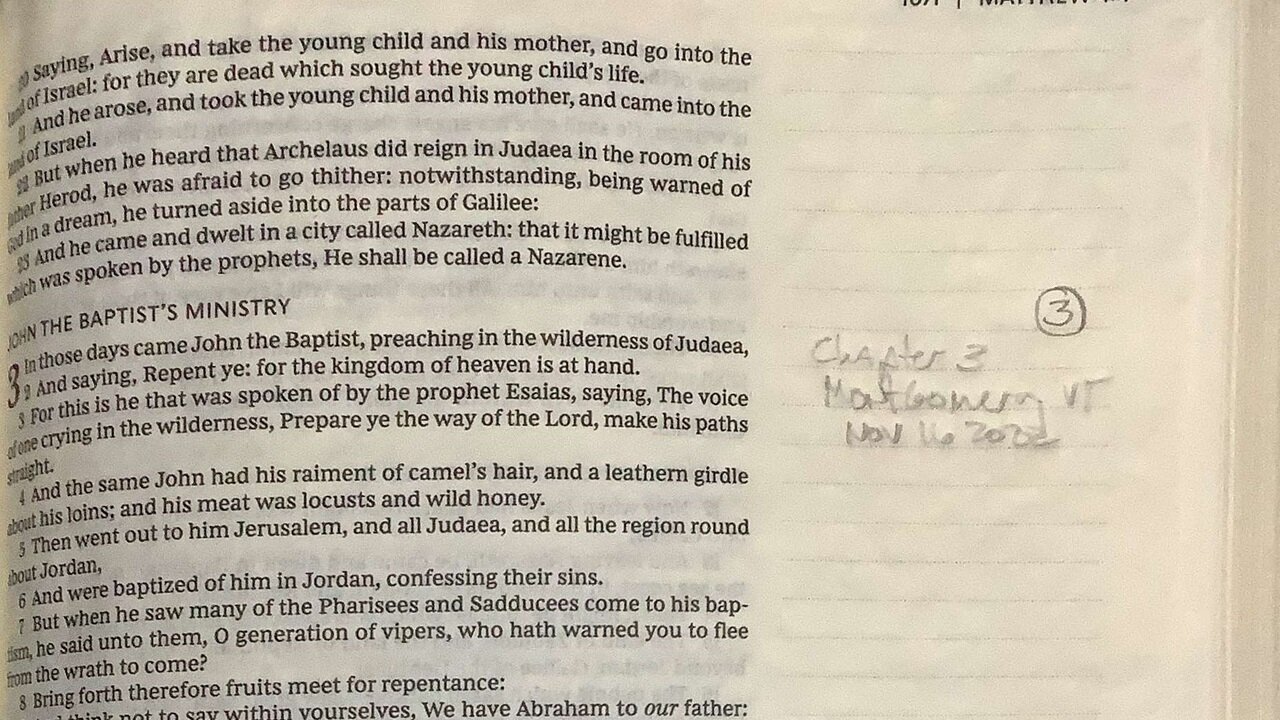 20 Saying, Arise, and take the young child and his mother, and go into the
land of Israel: for they are dead which sought the young child's life.
21 And he arose, and took the young child and his mother, and came into the
land of Israel.
22 But when he heard that Archelaus did reign in Judaea in the room of his
father Herod, he was afraid to go thither: notwithstanding, being warned of
God in a dream, he turned aside into the parts of Galilee:
23 And he came and dwelt in a city called Nazareth: that it might be fulfilled
which was spoken by the prophets, He shall be called a Nazarene.
JOHN THE BAPTIST'S MINISTRY
3 In those days came John the Baptist, preaching in the wilderness of Judaea,
2 And saying, Repent ye: for the kingdom of heaven is at hand.
3 For this is he that was spoken of by the prophet Esaias, saying, The voice
of one crying in the wilderness, Prepare ye the way of the Lord, make his paths
straight.
4 And the same John had his raiment of camel's hair, and a leathern girdle
about his loins; and his meat was locusts and wild honey.
5 Then went out to him Jerusalem, and all Judaea, and all the region round
about Jordan,
6 And were baptized of him in Jordan, confessing their sins.
7 But when he saw many of the Pharisees and Sadducees come to his bap-
tism, he said unto them, O generation of vipers, who hath warned you to flee
from the wrath to come?
8 Bring forth therefore fruits meet for repentance:
think not to say within yourselves, We have Abraham to our father:
3
Chapter 3
Montgomery VT
Nov 16 2022